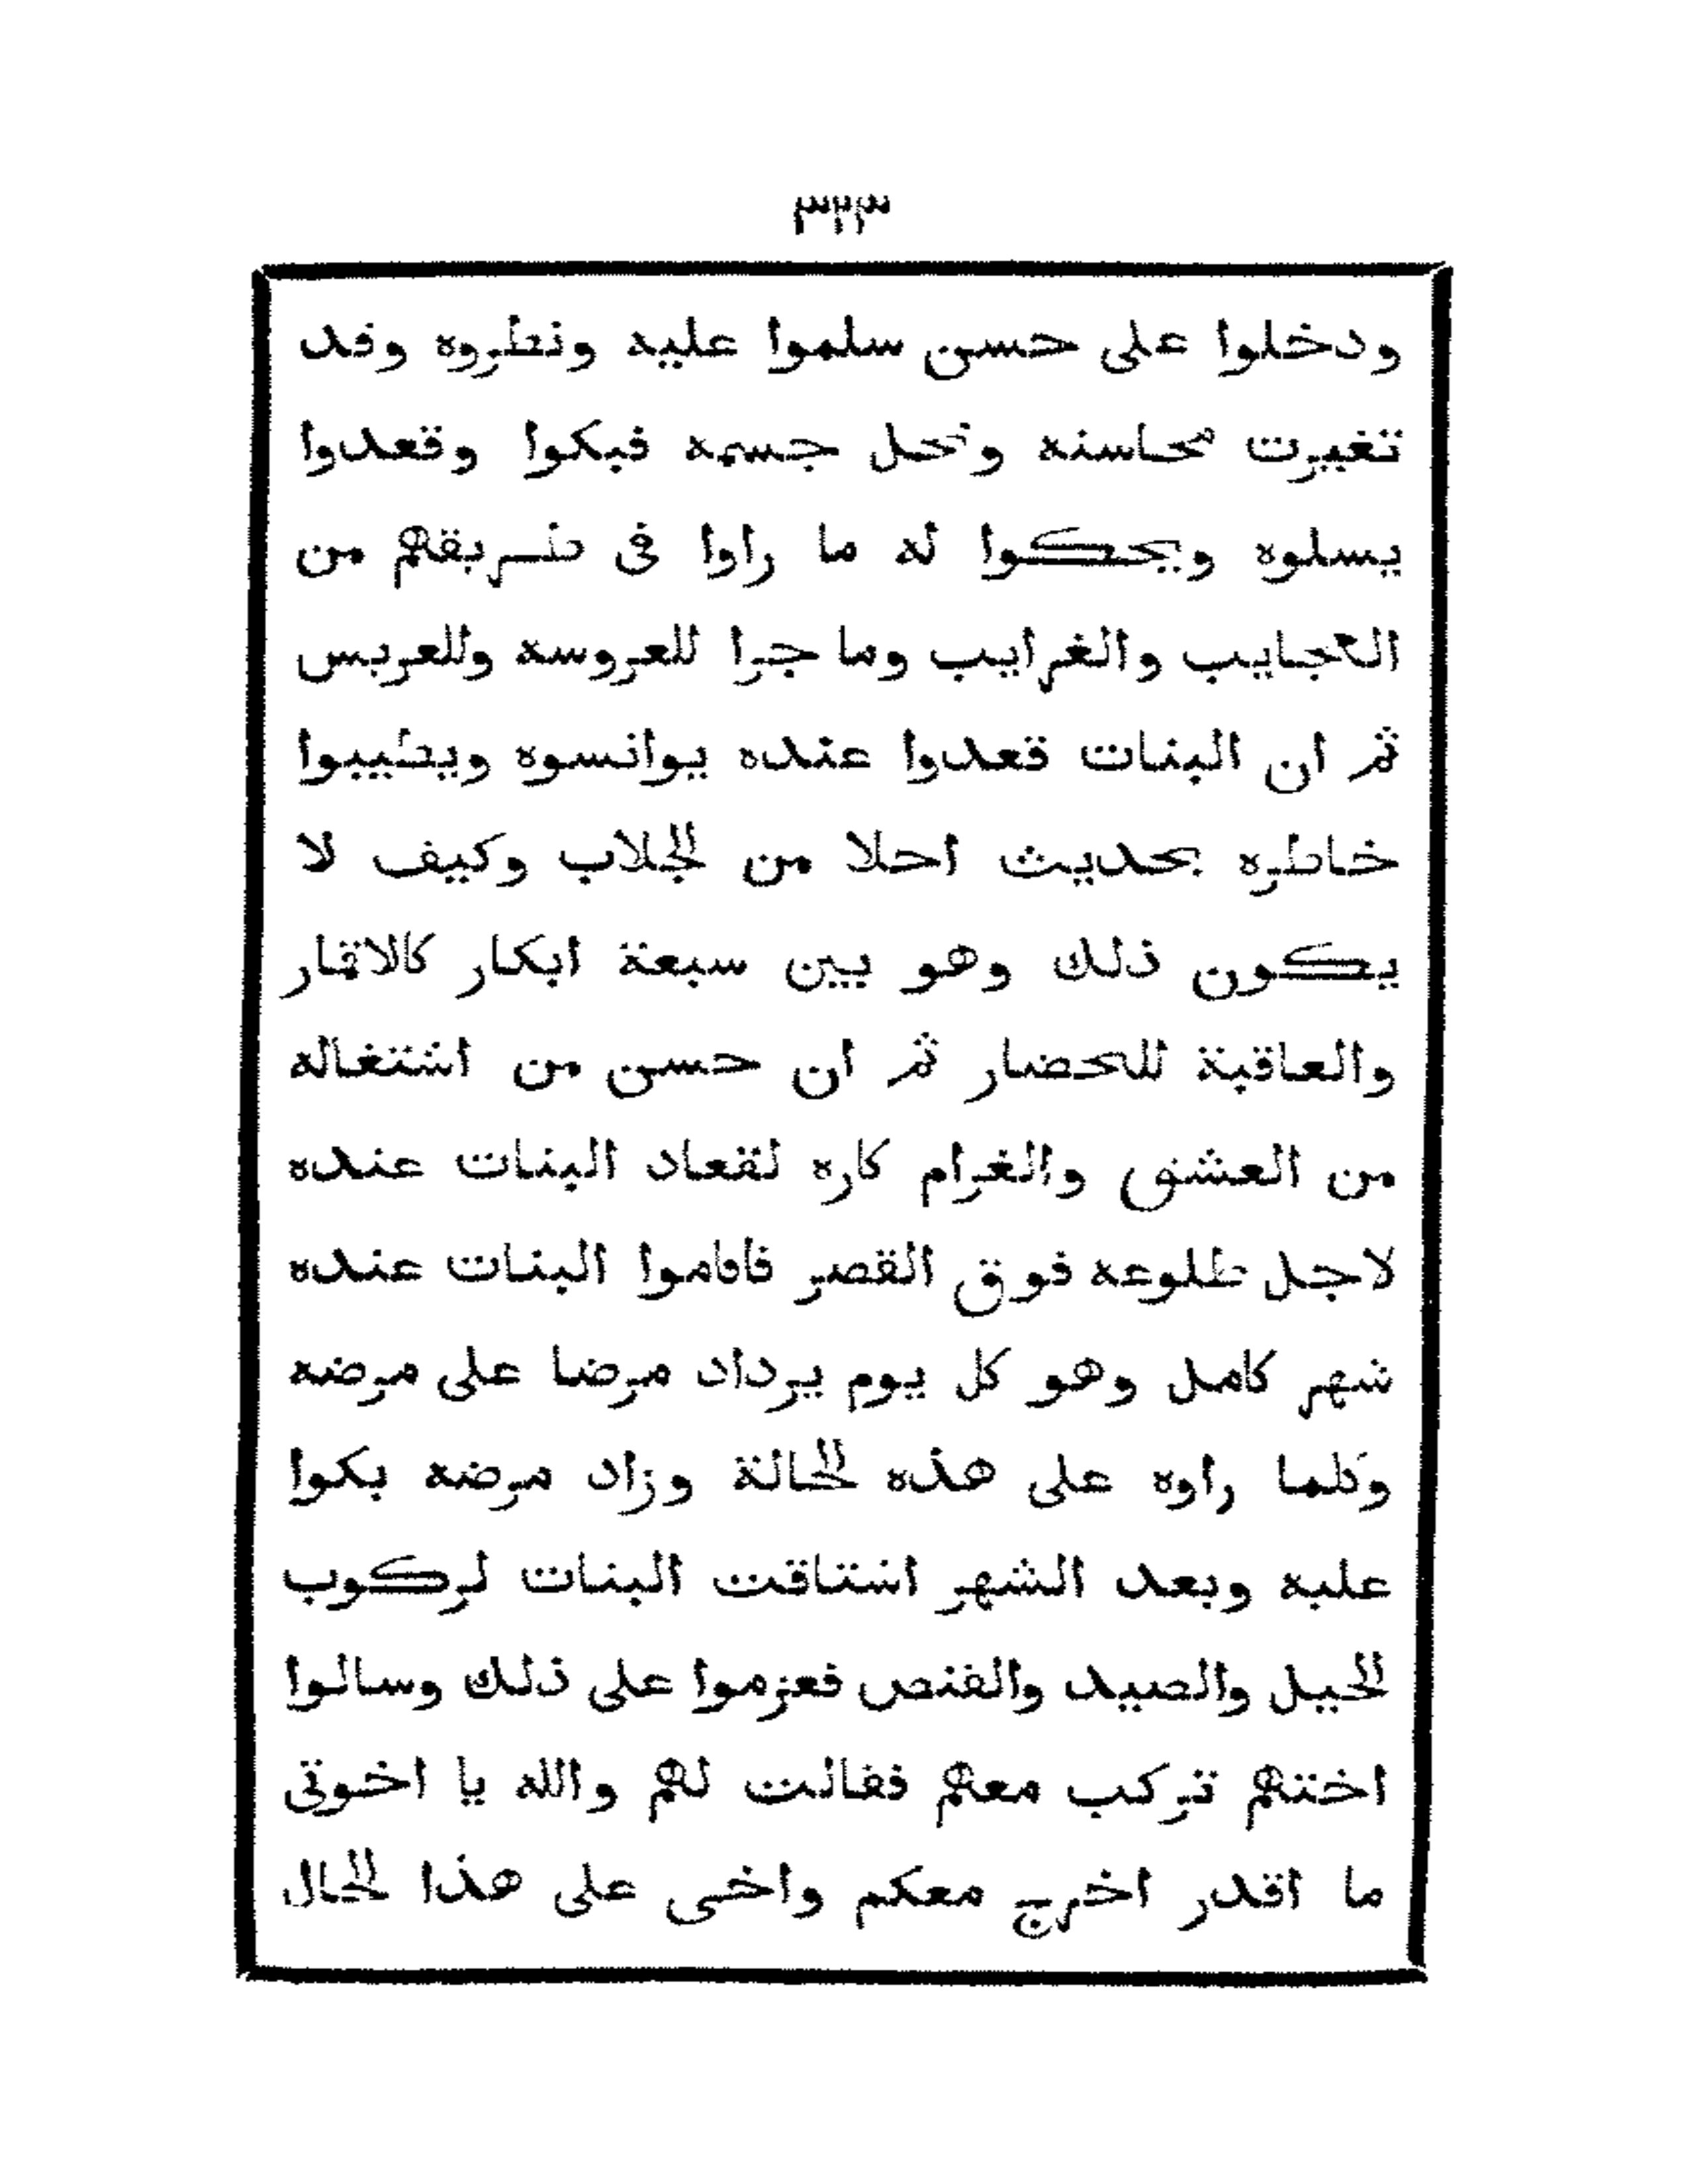 ٣٢٣
ودخلوا على حسن سلموا عليه ونظروه وقد
تغيرت محاسنه ونحل جسمه فبكوا وقعدوا
يسلوه ويحكوا له ما راوا فى طريقهم من
العجايب والغرايب وما جرا للعروسه وللعريس
ثم ان البنات قعدوا عنده يوانسوه ويطيبوا
خاطره بحديث احلا من الجلاب وكيف لا
يكون ذلك وهو بين سبعة ابكار كالاقمار
والعاقبة للحضار ثم ان حسن من اشتغاله
من العشق والغرام كاره لقعاد البنات عنده
لاجل طلوعه فوق القصر فاقاموا البنات عنده
شهر كامل وهو كل يوم يزداد مرضا على مرضه
وكلما راوه على هذه الحالة وزاد مرضه بكوا
عليه وبعد الشهر اشتاقت البنات لركوب
الخيل والصيد والقنص فعزموا على ذلك وسالوا
اختهم تركب معهم فقالت لهم والله يا اخوتى
ما اقدر اخرج معكم واخى على هذا الحال